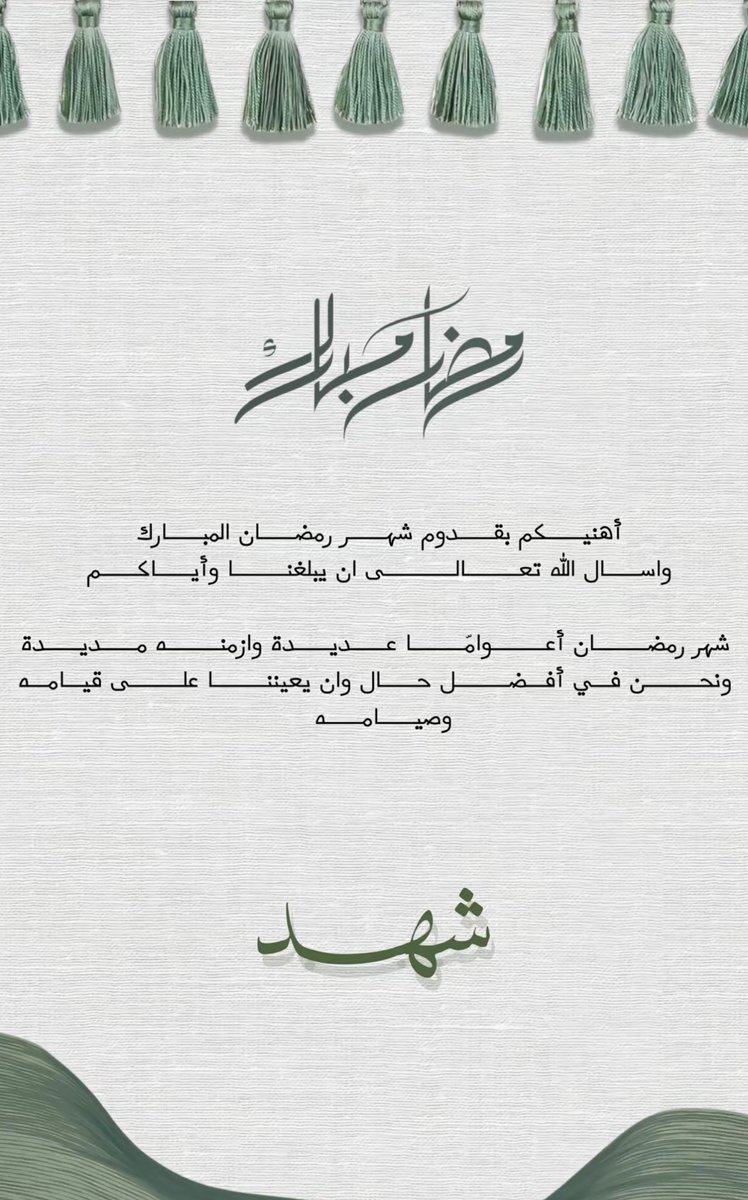 رمضان مبارك
أهنيكم بقدوم شهر رمضان المبارك
واسال الله تعالى ان يبلغنا وأياكم
شهر رمضان أعوامًا عديدة وازمنه مديدة
ونحن في أفضل حال وان يعيننا على قيامه
وصيامه
شهد